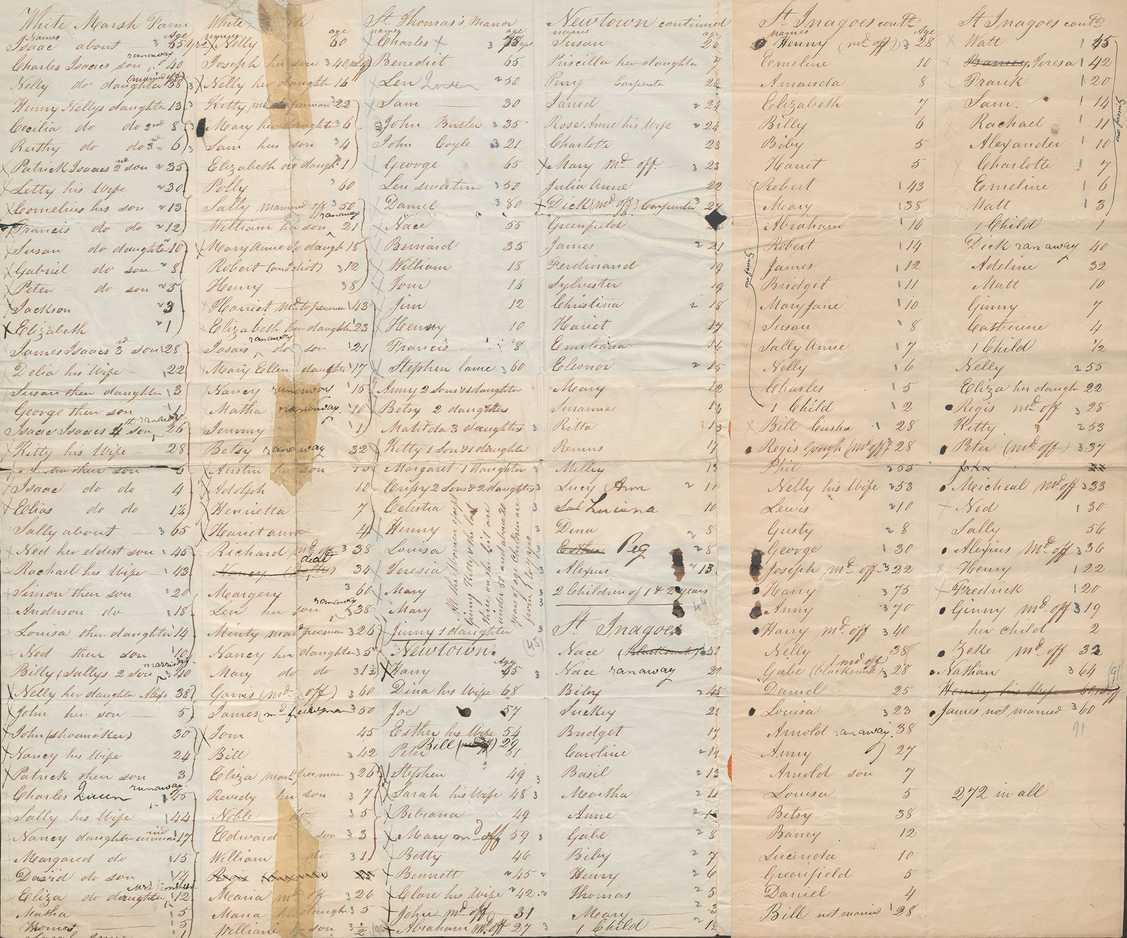 White Marsh Farm
Names age
Isaac about 65
Charles Isaacs son runaway 40
Nelly do daughter 38
Henny Nellys daughter 13
Cecilia do do 2nd 8
Ruthy do do 3rd 6
Patrick Isaacs 2nd son 35
Letty his Wife 30
Cornelius his son 13
Francis do do 12
Susan do daughter 10
Gabriel do son 8
Peter do son 5
Jackson 3
Elizabeth 1
James Isaacs 3rd son 28
Delia his Wife 22
Susan their daughter 3
George their son 1
Isaac Isaacs 4th son runaway 26
Kitty his Wife 28
their son 6
Isaac do do 4
Elias do do
Sally about 65
Ned her eldest son 45
Rachael his Wife 43
Simon their son 20
Anderson do 18
Louisa their daughter 14
Ned their son 10
Billy Sallys 2 son married 40
Nelly her daughter 38
John her son 5
John (shoemaker) 30
Nancy his Wife 24
Patrick their son 3
Charles Queen runaway 45
Sally his Wife 44
Nancy daughter 17
Margaret do 15
David do son 14
Eliza do daughter 12
Martha 5
Thomas 1
White
names age
Nelly 60
Joseph her son 40
Nelly her daughter 16
Kitty 22
Mary her daughter 6
Sam her son 4
Elizabeth 1
Polly 60
Sally 50
William her son runaway 21
Mary Anne do daugh 15
Robert 12
Henry 8
Harriet 43
Elizabeth her daughter 23
Isaac do son runaway 21
Mary Ellen daughter 17
Nancy runaway 15
Martha runaway 10
Jemmy 1
Betsy runaway 32
Austin her son
Adolph
Henrietta 7
Harriet ann 4
Richard md off 38
Nancy dead 34
Margery 60
Len her son runaway 38
Minty mard freeman 26
Nancy her daughter 5
Mary do do 3½
Garvis (md off) 60
James 50
Tom 45
Bill 42
Eliza mard freeman 26
Reverdy her son 7
Noble 5
Edward son 3
William do 1
Maria md off 26
Mama daugh 5
William son
St. Thomas's Manor
names age
Charles 75
Benedict 65
Len Queen 50
Sam 30
John Butler 35
John Coyle 21
George 65
Len Swarten 50
Daniel 80
Nace 55
Bernard 35
William 18
Tom 16
Jim 12
Henny 10
Francis 8
Stephen lame 60
Anny 2 sons & 1 daughter
Betsy 2 daughters
Matilda 3 daughters
Kitty 1 son & 1 daughter
Margaret 1 daughter
Crissy 2 sons & 2 daughters
Celestia
Henny
Louisa
Teresia
Mary
Mary
Jinny 1 daughter
Newtown
Age
Harry 65
Dina his Wife 68
Joe 57
Esther his Wife 54
Bill 29
Peter 21
Stephen 49
Sarah his Wife 48
Bibiana 49
Mary md off 59
Betty 46
Bennett 45
Clare his Wife 42
John md off 31
Abraham md off 27
Newtown continued
names age
Susan 26
Priscilla her daughter
Perry Carpenter
Jared 24
Rose Anne his Wife 24
Charlotte 23
Mary md off 23
Julia Anne 22
Dick (md off) Carpenter 27
Greenfield
James 21
Ferdinand 19
Sylvester 19
Christina 18
Hariet 17
Emeliana 16
Eleonor 15
Mary 12
Susanna
Ritta
Remus
Milley
Lucy Ann 10
Luciana 10
Dena 8
Peg 8
Alexius 13
2 Children of 1 & 2 years
St. Inagoes
Nace
Nace runaway 20
Biby 45
Suckey 21
Bridget 17
Caroline 14
Basil 13
Martha 4
Anne
Gabe 8
Biby 7
Henry 6
Thomas 5
Mary 2
1 Child 1½
St Inagoes contd
names Age
Henny (md off) 28
Emeline 10
Amanda 8
Elizabeth 7
Billy 6
Biby 5
Hariet 5
Robert 43
Mary 38
Abraham 16
Robert 14
James 12
Bridget 11
Mary Jane 10
Susan 8
Sally Anne 7
Nelly 6
Charles 5
1 Child 2
Bill Cush 28
Regis Gough (md off) 28
Phil 55
Nelly his Wife 53
Lewis 10
Gusty 8
George 30
Joseph md off 22
Harry 75
Anny 70
Harry md off 40
Nelly 38
Gabe (blacksmith) md off 28
Daniel 25
Louisa 23
Arnold runaway 38
Anny 27
Arnold son 7
Louisa 5
Betsy 38
Barney 12
Lucinda 10
Greenfield 5
Daniel 4
Bill not married 28
St Inagoes contd
Age
Watt 45
Barney Teresa 42
Frank 20
Sam. 14
Rachael 11
Alexander 10
Charlotte 7
Emeline 6
Watt 3
1 Child 1
Dick ran away 40
Adeline 32
Matt 10
Ginny 7
Catherine 4
1 Child ½
Kelly 55
Eliza her daugh 22
Regis md off 28
Kitty 53
Peter (md off) 37
Micheal md off 33
Ned 30
Sally 56
Alexius md off 36
Henry 22
Fredrick 20
Ginny md off 19
her child 2
Zeke md off 32
Nathan 64
Henny his Wife
James not married 60
91
272 in all